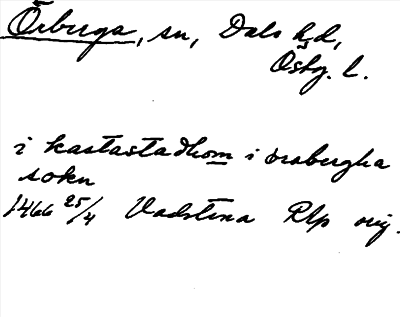 Örberga, sn, Dals hd,
Östg. l.
i kastastadhom i örabergha
sokn
1466 25/4 Vadstena Rlp orig.